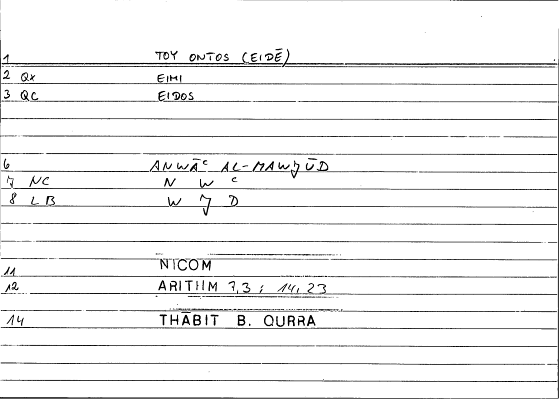 1 TOY ONTOS (EIDĒ)
2 QX EIMI
3 QC EIDOS
6 ANWĀC AL-MAWJŪD
7 NC N W C
8 LB W J D
11 NICOM
12 ARITHM 7,3 ; 14,23
14 THĀBIT B. QURRA